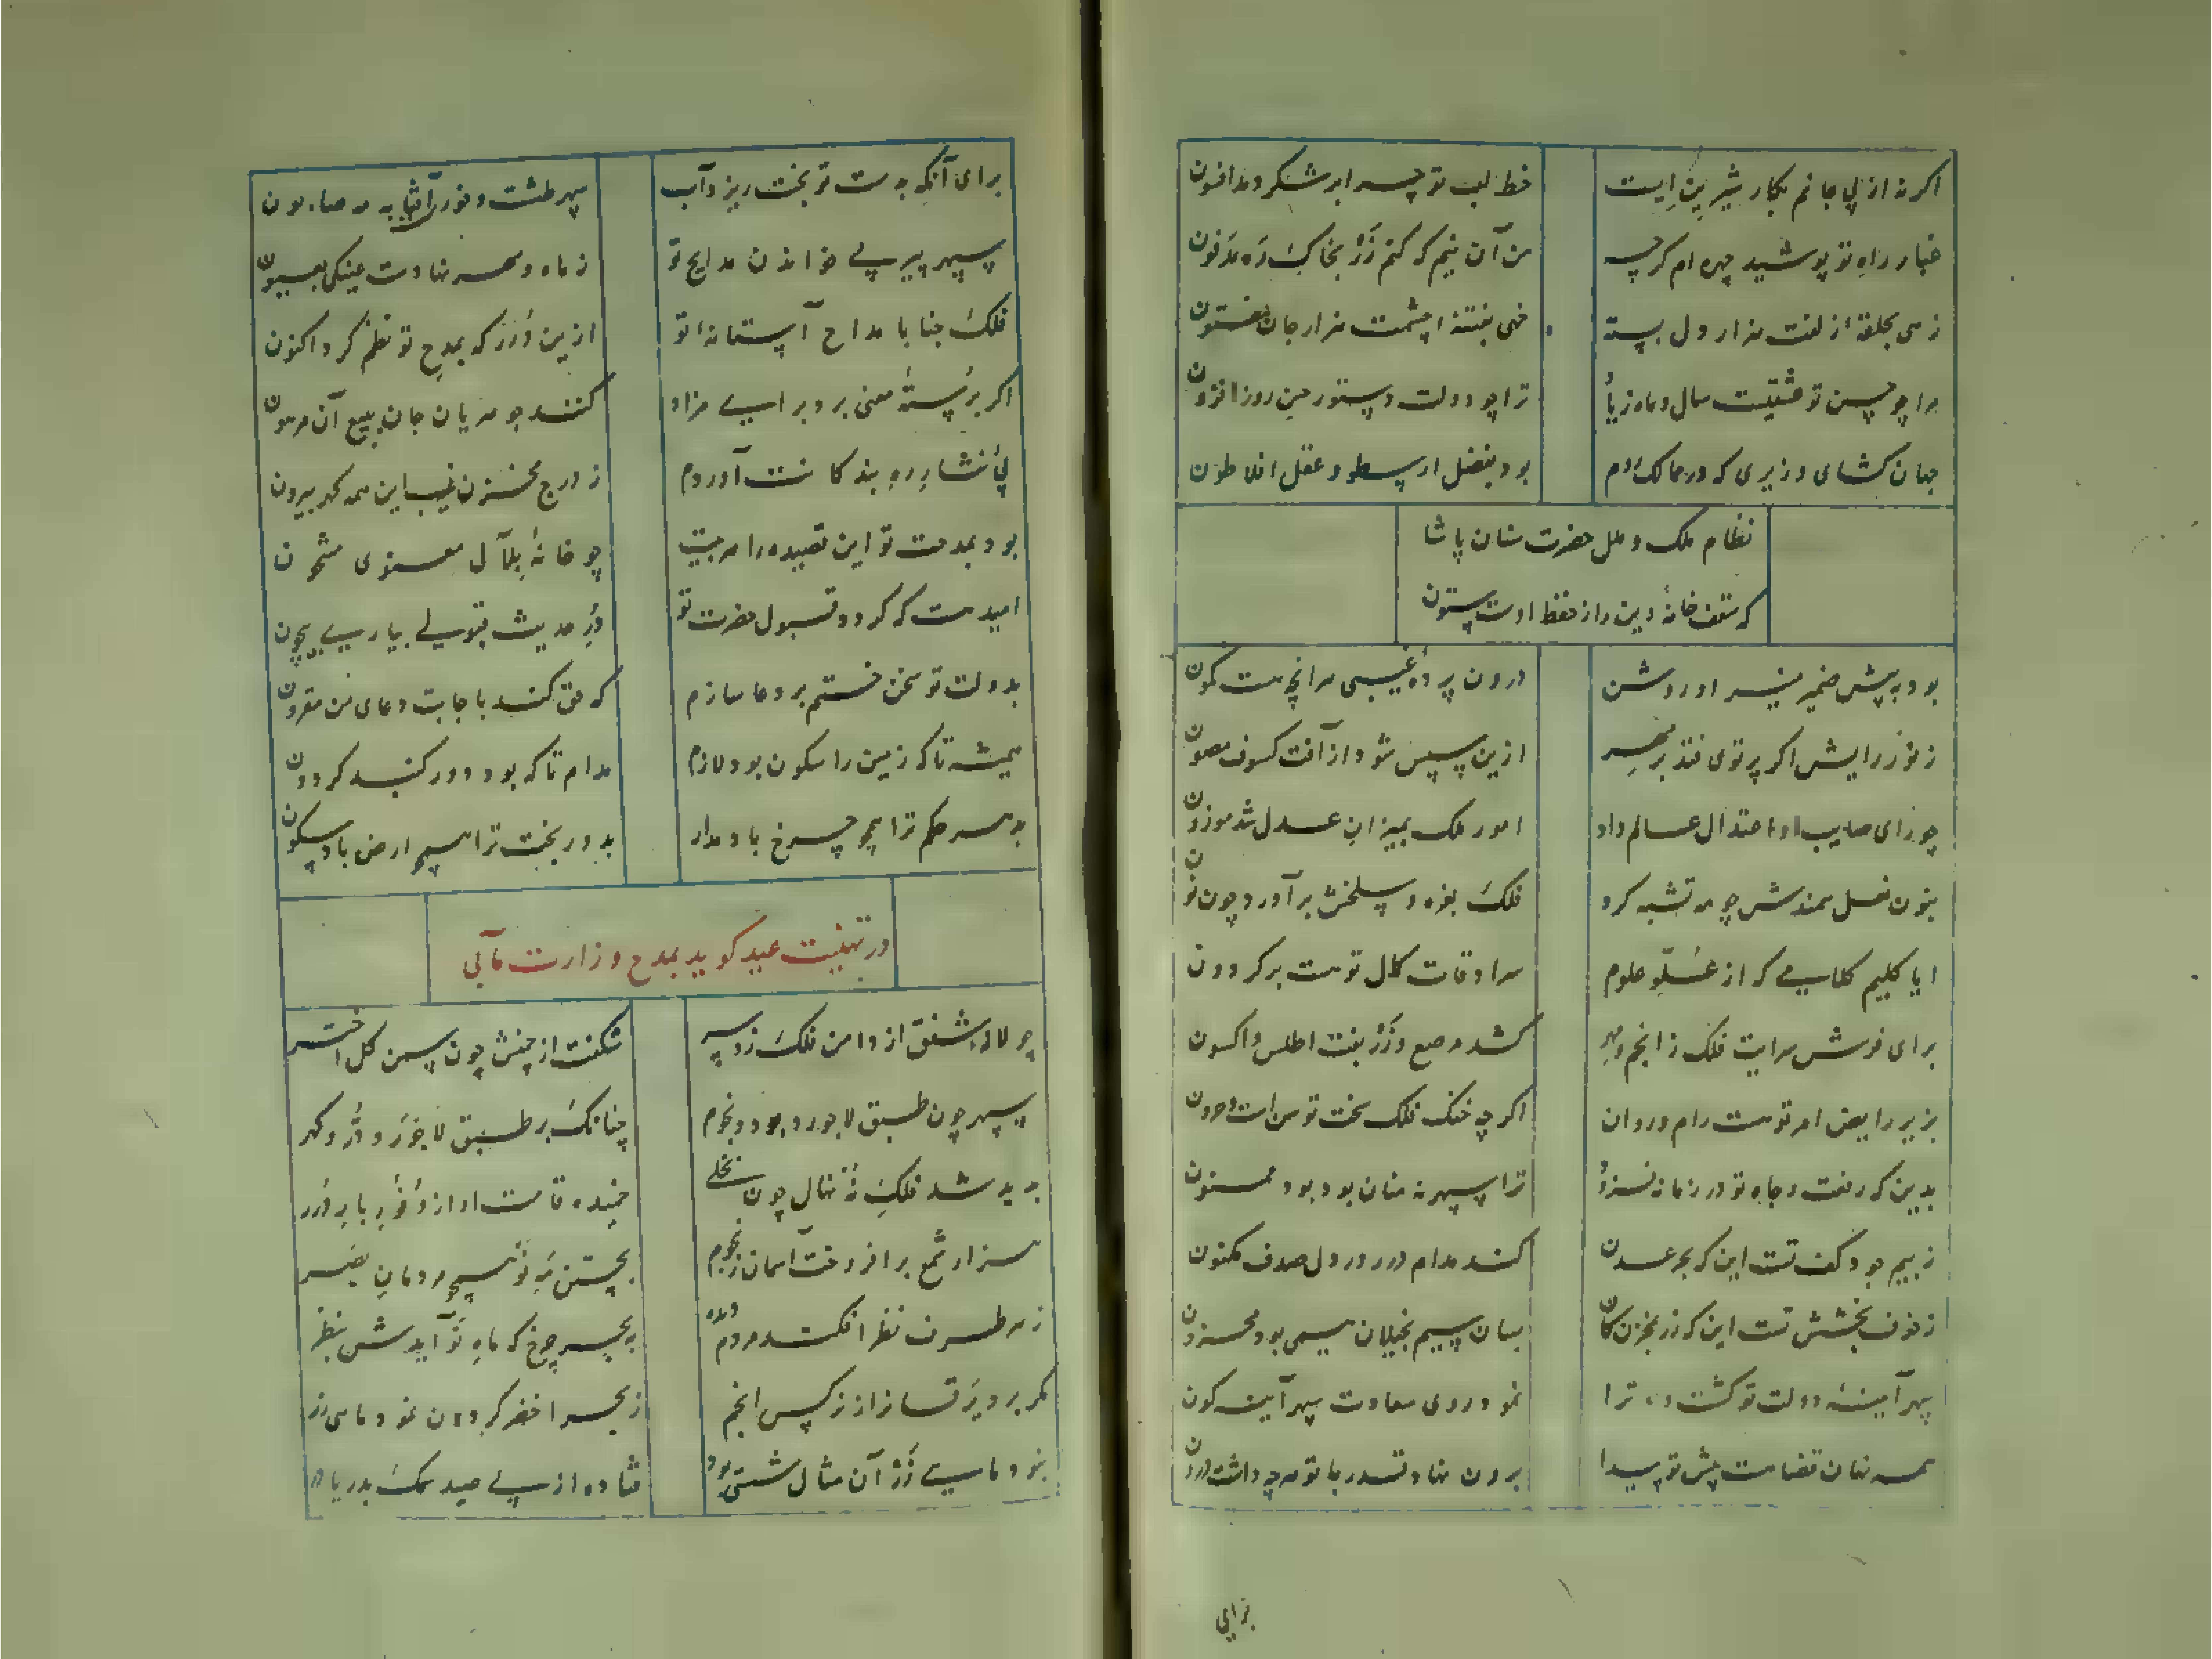 اگر نه از پی جانم بکار شیرین ایست
خط لب تو چرا بر شکر دمد افسون
غبار راه تو پوشید چهره ام کرچه
من آن نیم که کنم زر بخاک ره مدفون
زهی بحلقهٔ از لفت هزار دل بسته
خهی بفتنهٔ چشمت هزار جان مفتون
مرا چو حسن تو عشقیست سال و ماه زیاد
ترا چو دولت دستور حسن روز افزون
جهان کشای وزیری که در ممالک روم
بود بفضل ارسطو و عقل افلاطون
نظام ملک و ملل حضرت سنان پاشا
که سقف خانهٔ دین را ز حفظ اوست ستون
بود به پیش ضمیر منیر او روشن
درون پردهٔ غیبی هر انچه هست کمون
ز نور رایش اکر پرتوی فتد بر مهر
ازین سپس شود از آفت کسوف مصون
چو رای صایب او اعتدال عالم داد
امور ملک بمیزان عدل شد موزون
بنون نعل سمندش چو مه تشبه کرد
فلک بغره و سلخش برآورد چون نون
ایا کلیم کلامی که از علو علوم
سرادقات کمال تو هست بر کردون
برای فرش سرایت فلک ز انجم و مهر
کشد مرصع و زربفت اطلس و اکسون
بزیر رایض امر تو هست رام و روان
اکرچه خنک فلک سخت توسن است و حرون
بدین که رفعت و جاه تو در زمانه فزود
ترا سپهر نه منان بود بود ممنون
ز بیم جود کف تست این که بحر عدن
کند مدام درر در دل صدف مکنون
ز خوف بخشش تست این که زر بمخزن کان
بسان سیم بخیلان همی بود مخزون
سپهر آینهٔ دولت تو کشت و ترا
نمود روی سعادت سپهر آینه کون
همه نهان قضا هست پیش تو پیدا
برون نهاد قدر با تو هرچه داشت درون
برای
برای آنکه بدست تو بخت ریزد آب
سپهر طشت و خور آفتابه مه صابون
سپهر پیر پی خواندن مدایح تو
ز ماه و مهر نهادست عینکی بعیون
فلک جنابا مداح آستانهٔ تو
ازین درر که بمدح تو نظم کرد اکنون
اکر برستهٔ معنی برد برای مزاد
کنند جوهریان جان ببیع آن مرهون
پی نثار ره بندکانت آوردم
ز درج مخزن غیب این همه کهر بیرون
بود بمدحت تو این قصیده را هر بیت
چو خانهٔ بلآل معنوی مشحون
امید هست که کردد قبول حضرت تو
در حدیث قبولی بیاری بیچون
بدولت تو سخن ختم بر دعا سازم
که حق کند باجابت دعای من مقرون
همیشه تا که زمین را سکون بود لازم
مدام تا که بود دور کنبد کردون
بدهر حکم ترا همچو چرخ باد مدار
بدور بخت ترا همچو ارض باد سکون
در تهنیت عید کوید بمدح وزارت مآبی
چو لالهٔ شفق از دامن فلک زد سر
شکفت از چمنش چون سمن کل اختر
سپهر چون طبق لاجورد بود و نجوم
چنانک بر طبق لاجورد در و کهر
پدید شد فلک نو نهال چون نخلی
خمیده قامت او از وفور بار درر
هزار شمع برافروخت آسمان ز نجوم
بجستن مه نو همچو مردمان بصر
ز هر طرف نظر افکند مردم دیده
به بحر چرخ که ماه نو آیدش بنظر
مکر بدیر قسا زان ز نرکس انجم
ز بحر اخضر کردون نمود ماهی زر
نمود ماهی زر آن مثال شستی بود
فتاده از پی صید سمک بدریا در